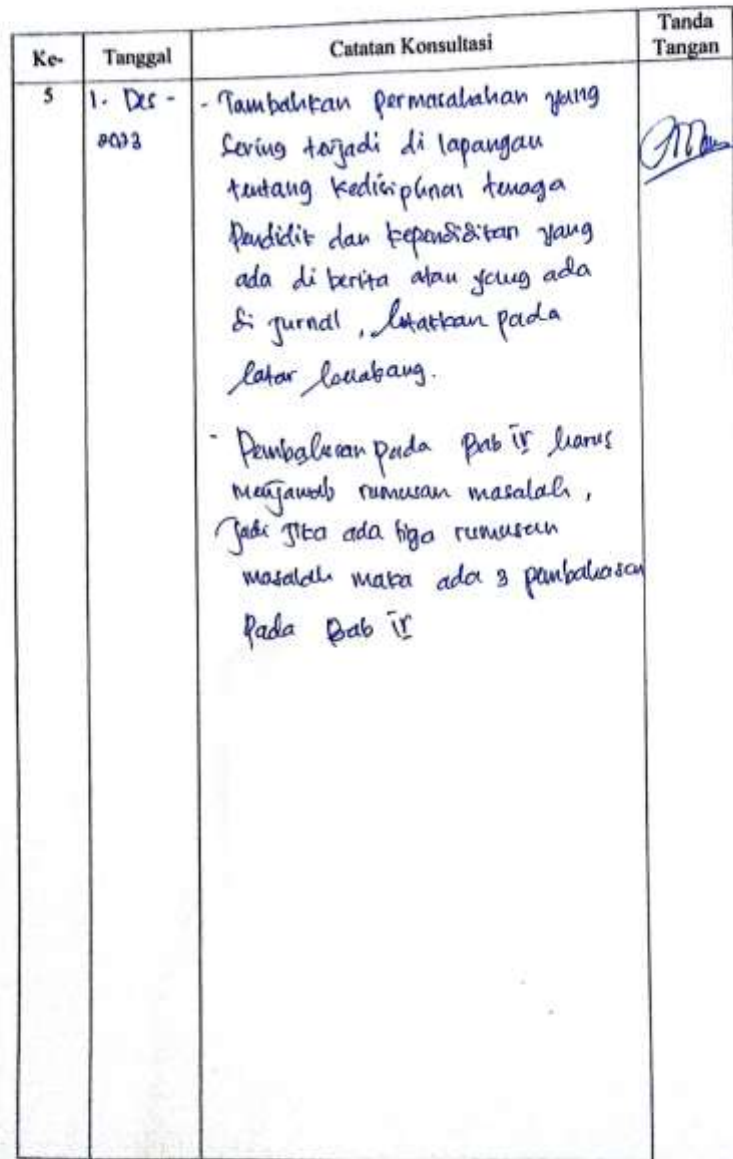 Ke-
Tanggal
Catatan Konsultasi
Tanda
Tangan
5
1. Des -
2023
- Tambahkan permasalahan yang
sering terjadi di lapangan
tentang kedisiplinan tenaga
Pendidik dan kependidikan yang
ada di berita atau yang ada
di jurnal, letakkan pada
latar belakang.
- Pembahasan pada Bab IV harus
menjawab rumusan masalah,
Jadi Jika ada tiga rumusan
masalah maka ada 3 pembahasan
Pada Bab IV